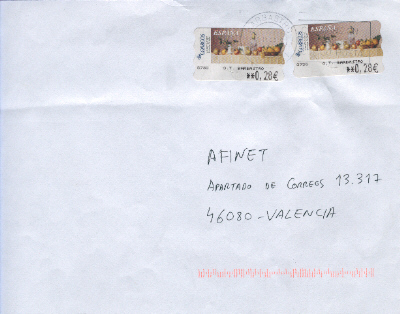 ESPAÑA
CORREOS
**0,28€
ESPAÑA
CORREOS
**0,28€
AFINET
APARTADO DE CORREOS 13.317
46080-VALENCIA